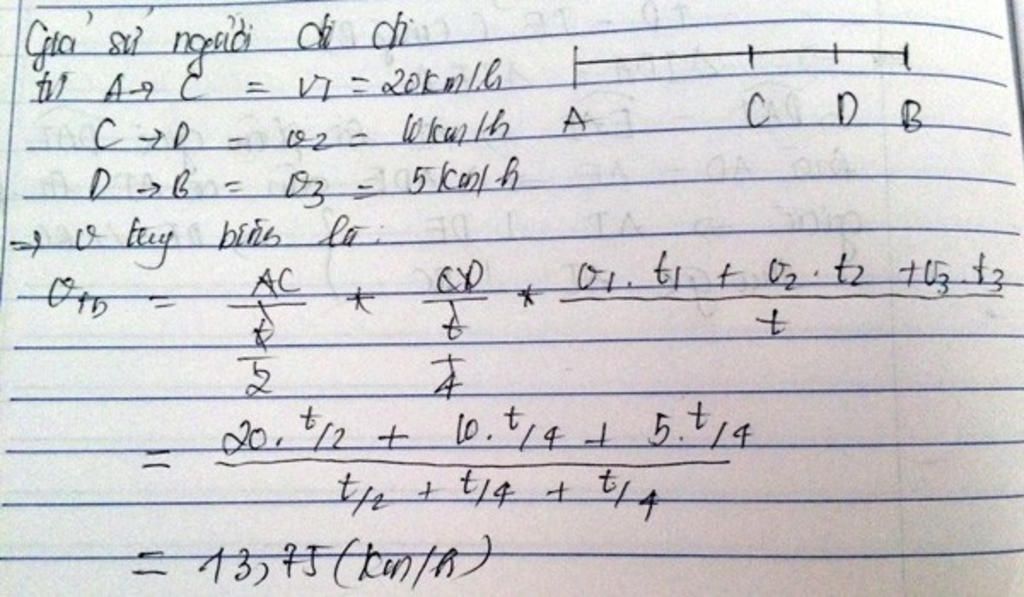 Giả sử người đi đi
từ A → C = v1 = 20km/h
A C D B
C → D = v2 = 10km/h
D → B = v3 = 5km/h
⇒ v tung bình là:
vtb = AC/(t/2) * CD/(t/4) * (v1 . t1 + v2 . t2 + v3 . t3)/t
= (20 . t/2 + 10 . t/4 + 5 . t/4)/(t/2 + t/4 + t/4)
= 13,75 (km/h)